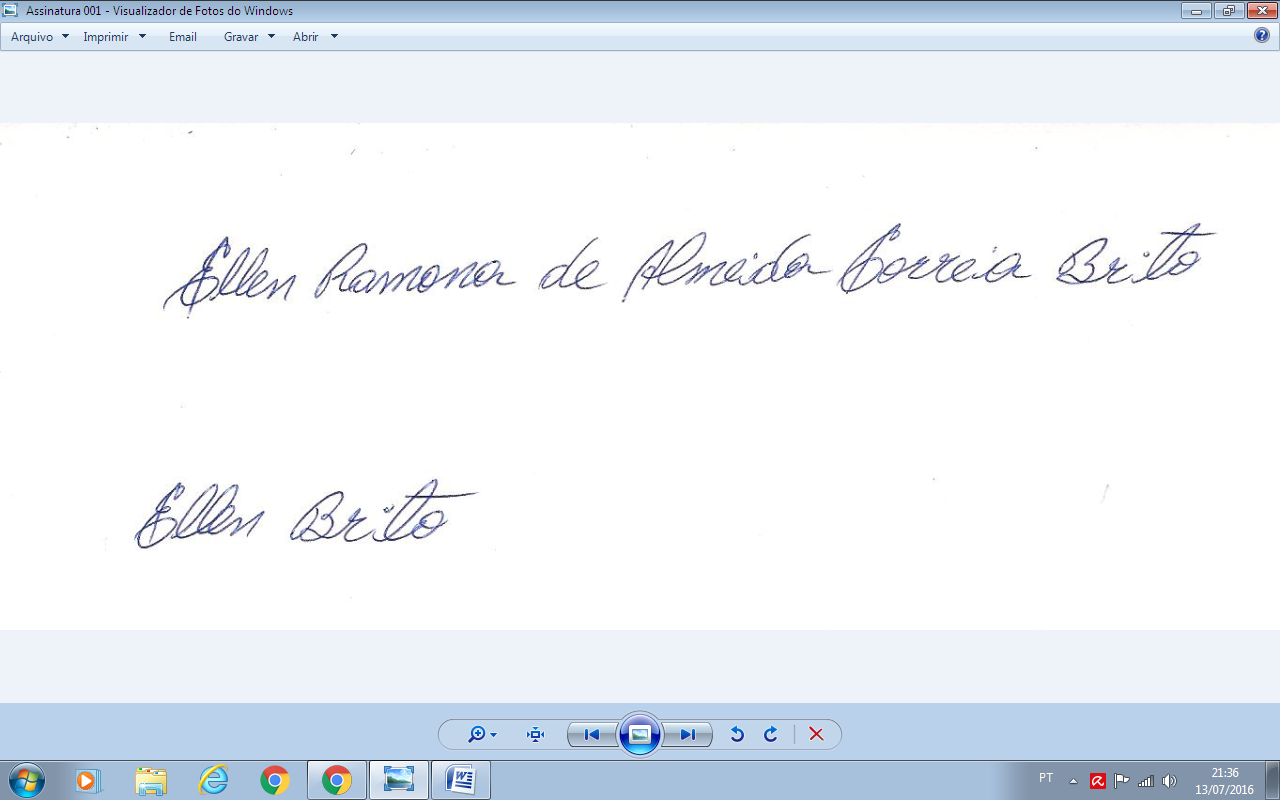 Assinatura 001 - Visualizador de Fotos do Windows
Arquivo Imprimir Email Gravar Abrir
Ellen Ramona de Almeida Correia Brito
Ellen Brito
PT 21:36
13/07/2016